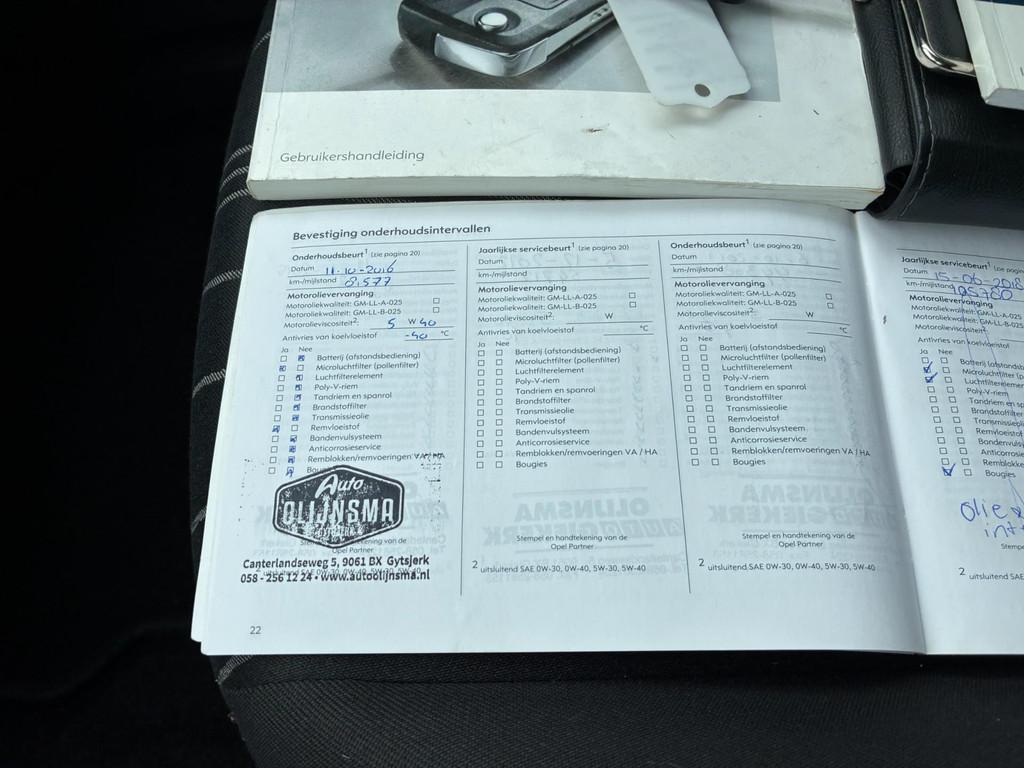 Gebruikershandleiding
Bevestiging onderhoudsintervallen
Onderhoudsbeurt¹ (zie pagina 20)
Datum 11-10-2016
km-/mijlstand 8.577
Motorolievervanging
Motoroliekwaliteit: GM-LL-A-025
Motoroliekwaliteit: GM-LL-B-025
Motorolieviscositeit²: 5 W 40
Antivries van koelvloeistof -40 °C
Ja Nee
Batterij (afstandsbediening)
Microluchtfilter (pollenfilter)
Luchtfilterelement
Poly-V-riem
Tandriem en spanrol
Brandstoffilter
Transmissieolie
Remvloeistof
Bandenvulsysteem
Anticorrosieservice
Remblokken/remvoeringen VA / HA
Auto
OLIJNSMA
Opel Partner
Canterlandseweg 5, 9061 BX Gytsjerk
058 - 256 12 24 • www.autoolijnsma.nl
22
Jaarlijkse servicebeurt¹ (zie pagina 20)
Datum
km-/mijlstand
Motorolievervanging
Motoroliekwaliteit: GM-LL-A-025
Motoroliekwaliteit: GM-LL-B-025
Motorolieviscositeit²: W
Antivries van koelvloeistof °C
Ja Nee
Batterij (afstandsbediening)
Microluchtfilter (pollenfilter)
Luchtfilterelement
Poly-V-riem
Tandriem en spanrol
Brandstoffilter
Transmissieolie
Remvloeistof
Bandenvulsysteem
Anticorrosieservice
Remblokken/remvoeringen VA / HA
Bougies
Stempel en handtekening van de
Opel Partner
² uitsluitend SAE 0W-30, 0W-40, 5W-30, 5W-40
Onderhoudsbeurt¹ (zie pagina 20)
Datum
km-/mijlstand
Motorolievervanging
Motoroliekwaliteit: GM-LL-A-025
Motoroliekwaliteit: GM-LL-B-025
Motorolieviscositeit²: W
Antivries van koelvloeistof °C
Ja Nee
Batterij (afstandsbediening)
Microluchtfilter (pollenfilter)
Luchtfilterelement
Poly-V-riem
Tandriem en spanrol
Brandstoffilter
Transmissieolie
Remvloeistof
Bandenvulsysteem
Anticorrosieservice
Remblokken/remvoeringen VA / HA
Bougies
Stempel en handtekening van de
Opel Partner
² uitsluitend SAE 0W-30, 0W-40, 5W-30, 5W-40
Jaarlijkse servicebeurt¹ (zie pagina
Datum 15-06-2018
km-/mijlstand 105780
Motorolievervanging
Motoroliekwaliteit: GM-LL-A-025
Motoroliekwaliteit: GM-LL-B-025
Motorolieviscositeit²:
Antivries van koelvloeistof
Ja Nee
Batterij
Microluchtfilter
Luchtfilterelement
Poly-V-riem
Tandriem en
Brandstoffilter
Remvloeistof
Bougies
olie
² uitsluitend SAE 0W-30,